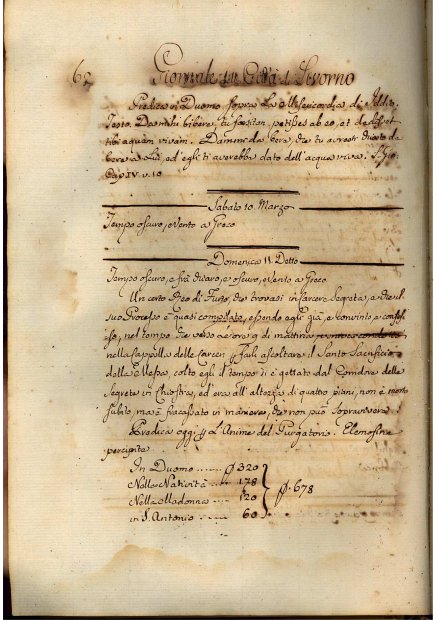 62 Giornale della Città di Livorno
Predica in Duomo sopra la Misericordia di Iddio
Testo. Da mihi bibere, tu forsitan petisses ab eo, et dedisset
tibi aquam vivam. Dammi da bere, che tu avresti chiesto da
bere a Lui, ed egli ti averebbe dato dell'acqua viva. S. Gio.
Cap IV. v. 10
Sabato 10. Marzo
Tempo oscuro, e Vento a Greco
Domenica 11. Detto
Tempo oscuro, e frà chiaro, e oscuro, e Vento a Greco
Un certo Reo di Furto, che trovasi in Carcere Segreta, e che il
suo Processo è quasi compilato, essendo egli già, e convinto, e confes
so, nel tempo che verso le ore 9 di mattina
nella Cappella delle Carceri p. farli ascoltare il Santo Sacrificio
della Messa, colto egli il tempo si è gettato dal Corridore delle
Segrete in Chiostra, ed era all'altezza di quattro piani, non è morto
subito, ma è fracassato in maniera, che non può sopravivere.
Predica oggi p. l'Anime del Purgatorio. Elemosine
percipite
In Duomo ...... 320
Nella Natività .... 178
Nella Madonna .... 120
in S. Antonio .... 60
678